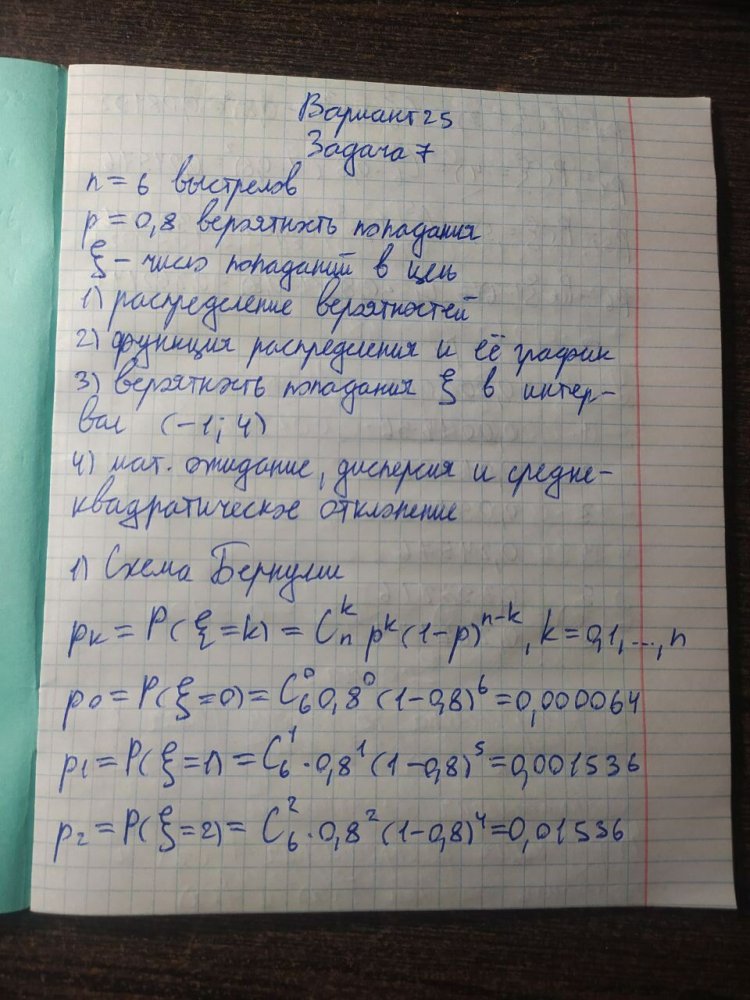 Вариант 25
Задача 7
n = 6 выстрелов
p = 0,8 вероятность попадания
ξ – число попаданий в цель
1) распределение вероятностей
2) функция распределения и её график
3) вероятность попадания ξ в интер-
вал (-1; 4)
4) мат. ожидание, дисперсия и средне-
квадратическое отклонение
1) Схема Бернулли
pₖ = P(ξ=k) = Cₙᵏ pᵏ (1-p)ⁿ⁻ᵏ, k = 0,1,...,n
p₀ = P(ξ=0) = C₆⁰ 0,8⁰ (1-0,8)⁶ = 0,000064
p₁ = P(ξ=1) = C₆¹ · 0,8¹ (1-0,8)⁵ = 0,001536
p₂ = P(ξ=2) = C₆² · 0,8² (1-0,8)⁴ = 0,01536